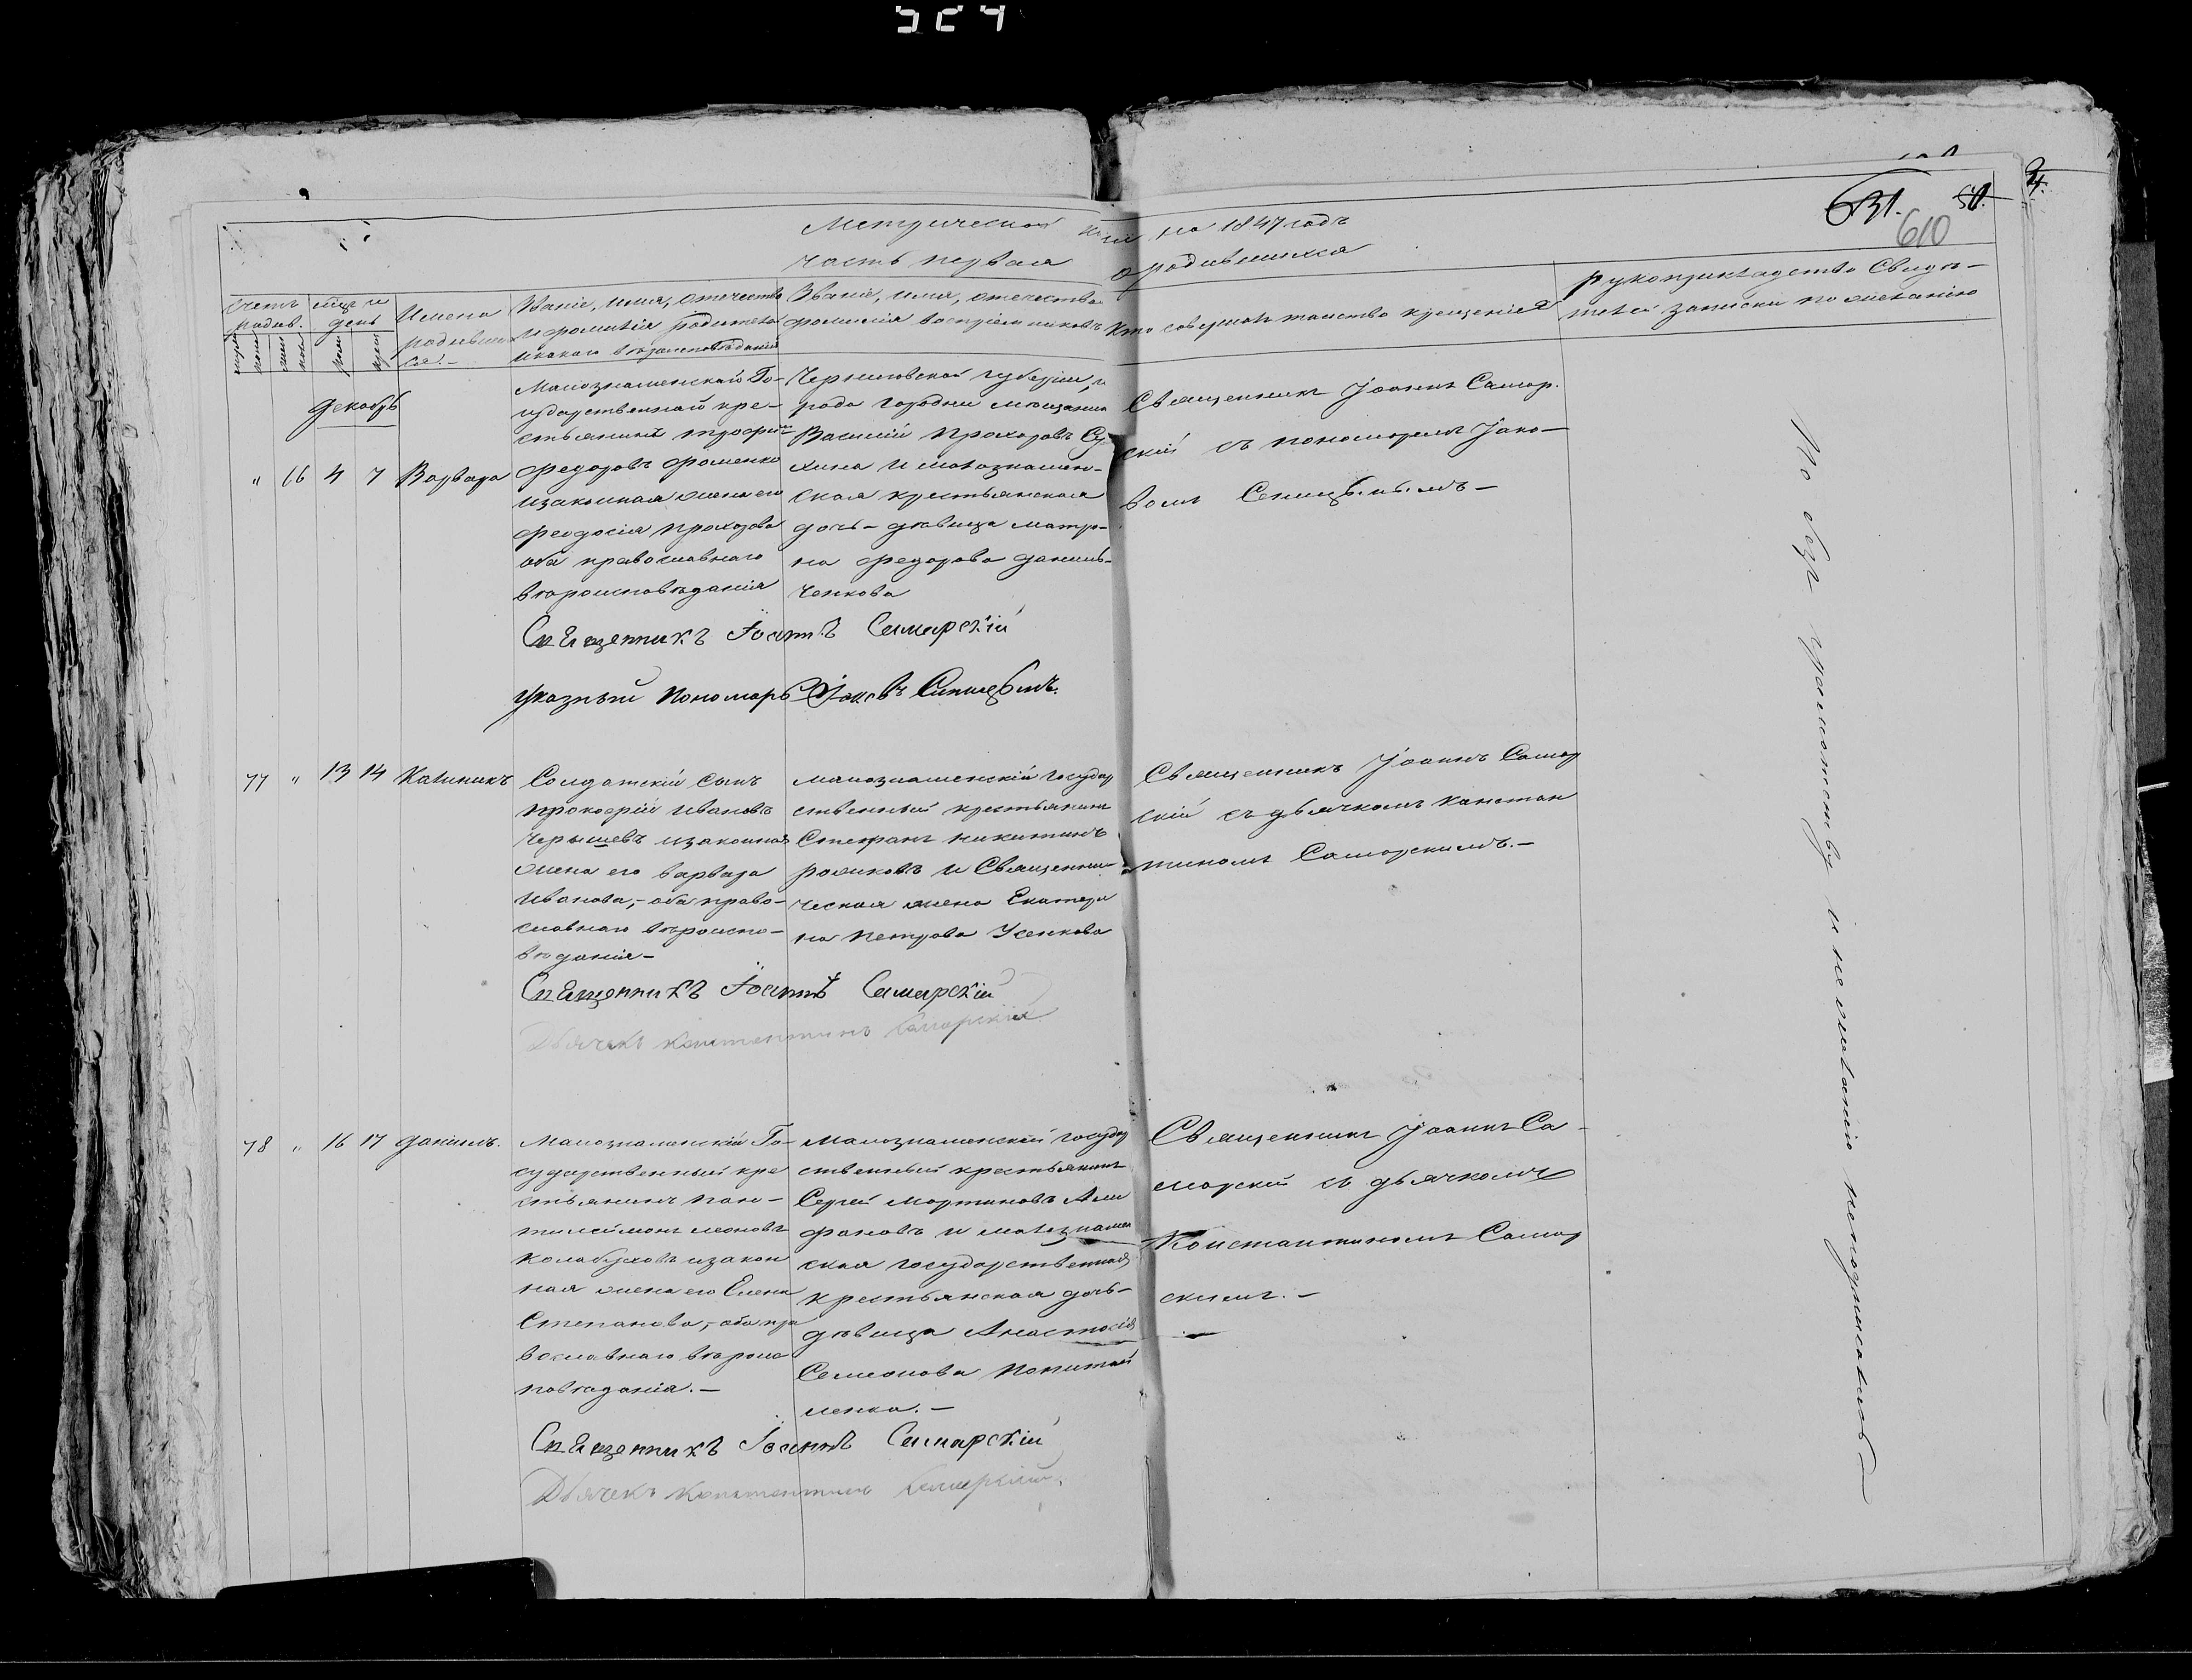 Метрической книги на 1847 годъ
часть первая о родившихся
631.
610
Счетъ родив.
мца и день
Имена родившихся.
Званіе, имя, отечество и фомилія родителей и какаго вероисповеданія
Званіе, имя, отечество фомилія воспріемниковъ
Кто совершалъ таинство крещенія
рукоприкладство свиде-
телей записки по желанію
Декабрь
" 66 4 7 Варвара
Малознаменскай Го-
сударственнай кре-
стьянинъ трофим
федоровъ фоменко
изаконная жена его
феодосія прохорова
оба православнаго
вероисповеданія
Черниговской губерніи, го
рода городни мещанин
Василій Прохоровъ Су
хина и малознамен-
ская крестьянская
дочь - девица матро-
на федорова даниль-
ченкова
Священникъ Іоаннъ Самар
скій съ пономаремъ Іако-
вомъ Синицынымъ -
Священникъ Іоаннъ Самарскій
указный пономарь Іаковъ Синицынъ.
77 " 13 14 Калиникъ
Солдатскій сынъ
прокофій ивановъ
Чернышевъ изаконная
жена его варвара
иванова, - оба право-
славнаго вероиспо-
веданія -
малознаменскій государ
ственный крестьянинъ
Стефанъ никитинъ
рожковъ и Священни
ческая жена Екатери
на петрова Усенкова
Священникъ Іоаннъ Самар
скій съ дьячкомъ констан
тиномъ Самарскимъ. -
Священникъ Іоаннъ Самарскій
Дьячекъ Константинъ Самарскій
78 " 16 17 Данiилъ.
Малознаменскій Го-
сударственный кре
стьянинъ пан-
тилеймонъ леоновъ
Колабуховъ изакон
ная жена его Елена
Степанова, - оба пра
вославнаго вероис
поведанія. -
Малознаменскій государ
ственный крестьянинъ
Сергей мартиновъ Али
фановъ и малознамен
ская государственная
крестьянская дочь -
девица Анастасія
Семионова
ленка. -
Священникъ Іоаннъ Са-
марскій съ дьячкомъ
Константиномъ Самар
скимъ. -
Священникъ Іоаннъ Самарскій
Дьячекъ Константинъ Самарскій.
По без грамотству и не желанію неподписались